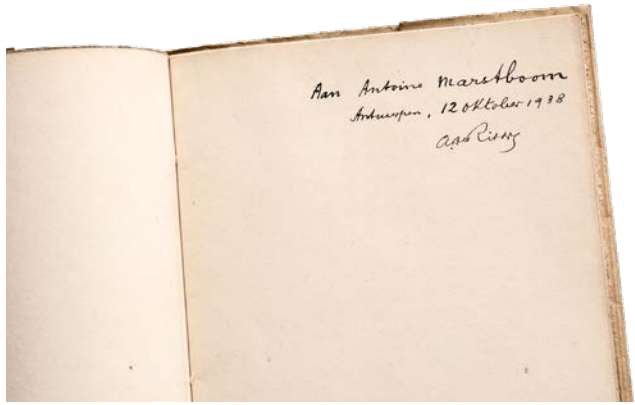 Aan Antoine Marstboom
Antwerpen, 12 oktober 1938